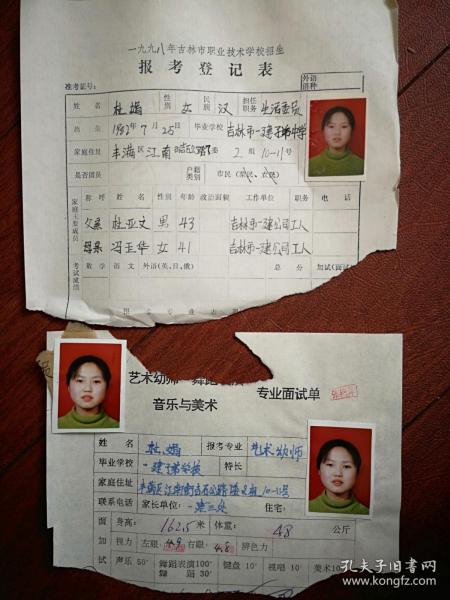 一九九八年吉林市职业技术学校招生
报考登记表
准考证号：
外语
语种
姓名 杜娟 性别 女 民族 汉 担任职务 生活委员
出生 1982年7月25日 毕业学校 吉林市一建子弟中学
家庭住址 丰满区江南 委 2组 10-11号
是否团员 户籍类别 市民（农民、农民）
家庭主要成员
称呼 姓名 性别 年龄 政治面貌 工作单位 职务 电话
父亲 杜亚文 男 43 吉林市一建公司工人
母亲 冯玉华 女 41 吉林市一建公司工人
考试成绩
数学 语文 外语（英、日、俄） 总分 加试（面试
艺术幼师 舞蹈 专业面试单
音乐与美术
姓名 杜娟 报考专业 艺术幼师
毕业学校 一建子弟学校 特长
家庭住址 丰满区江南街吉 10-11号
联系电话 家长单位：一建三处 住宅：
面 身高：162.5米 体重：48 公斤
加 视力 左眼：4.9 右眼：4.8 辨色力
试 声乐 50′ 舞蹈表演100′ 键盘 10′ 视唱 10′ 美术10
舞蹈 30′
孔夫子旧书网
www.kongfz.com